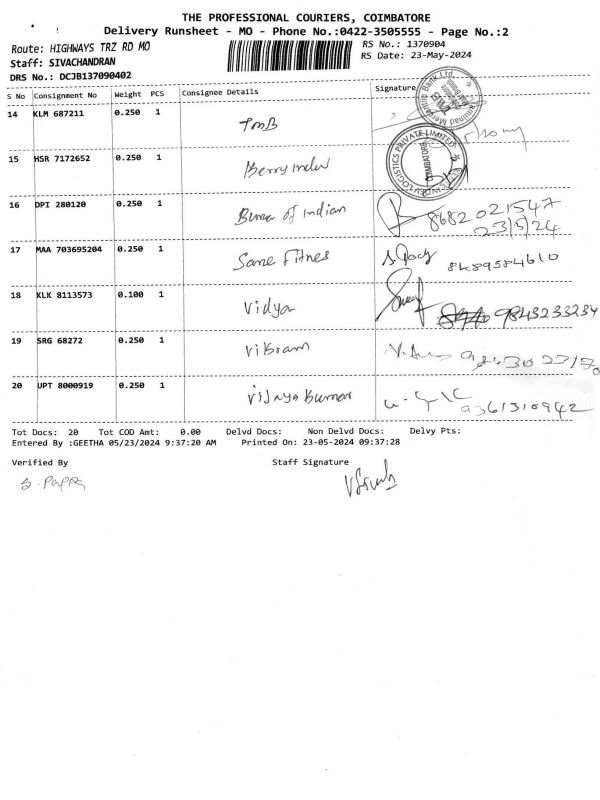 THE PROFESSIONAL COURIERS, COIMBATORE
Delivery Runsheet - MO - Phone No.:0422-3505555 - Page No.:2
Route: HIGHWAYS TRZ RD MO RS No.: 1370904
Staff: SIVACHANDRAN RS Date: 23-May-2024
DRS No.: DCJB137090402
S No Consignment No Weight PCS Consignee Details Signature
14 KLM 687211 0.250 1 TMB
15 HSR 7172652 0.250 1
LOGISTICS PRIVATE LIMITED COIMBATORE
16 DPI 280120 0.250 1 of Indian 8682021547
23/5/24
17 MAA 703695204 0.250 1 Same Fitnes 8489584610
18 KLK 8113573 0.100 1 Vidya 9843233234
19 SRG 68272 0.250 1 Vikram
20 UPT 8000919 0.250 1 Vijaya Kumar 9361310942
Tot Docs: 20 Tot COD Amt: 0.00 Delvd Docs: Non Delvd Docs: Delvy Pts:
Entered By :GEETHA 05/23/2024 9:37:20 AM Printed On: 23-05-2024 09:37:28
Verified By Staff Signature